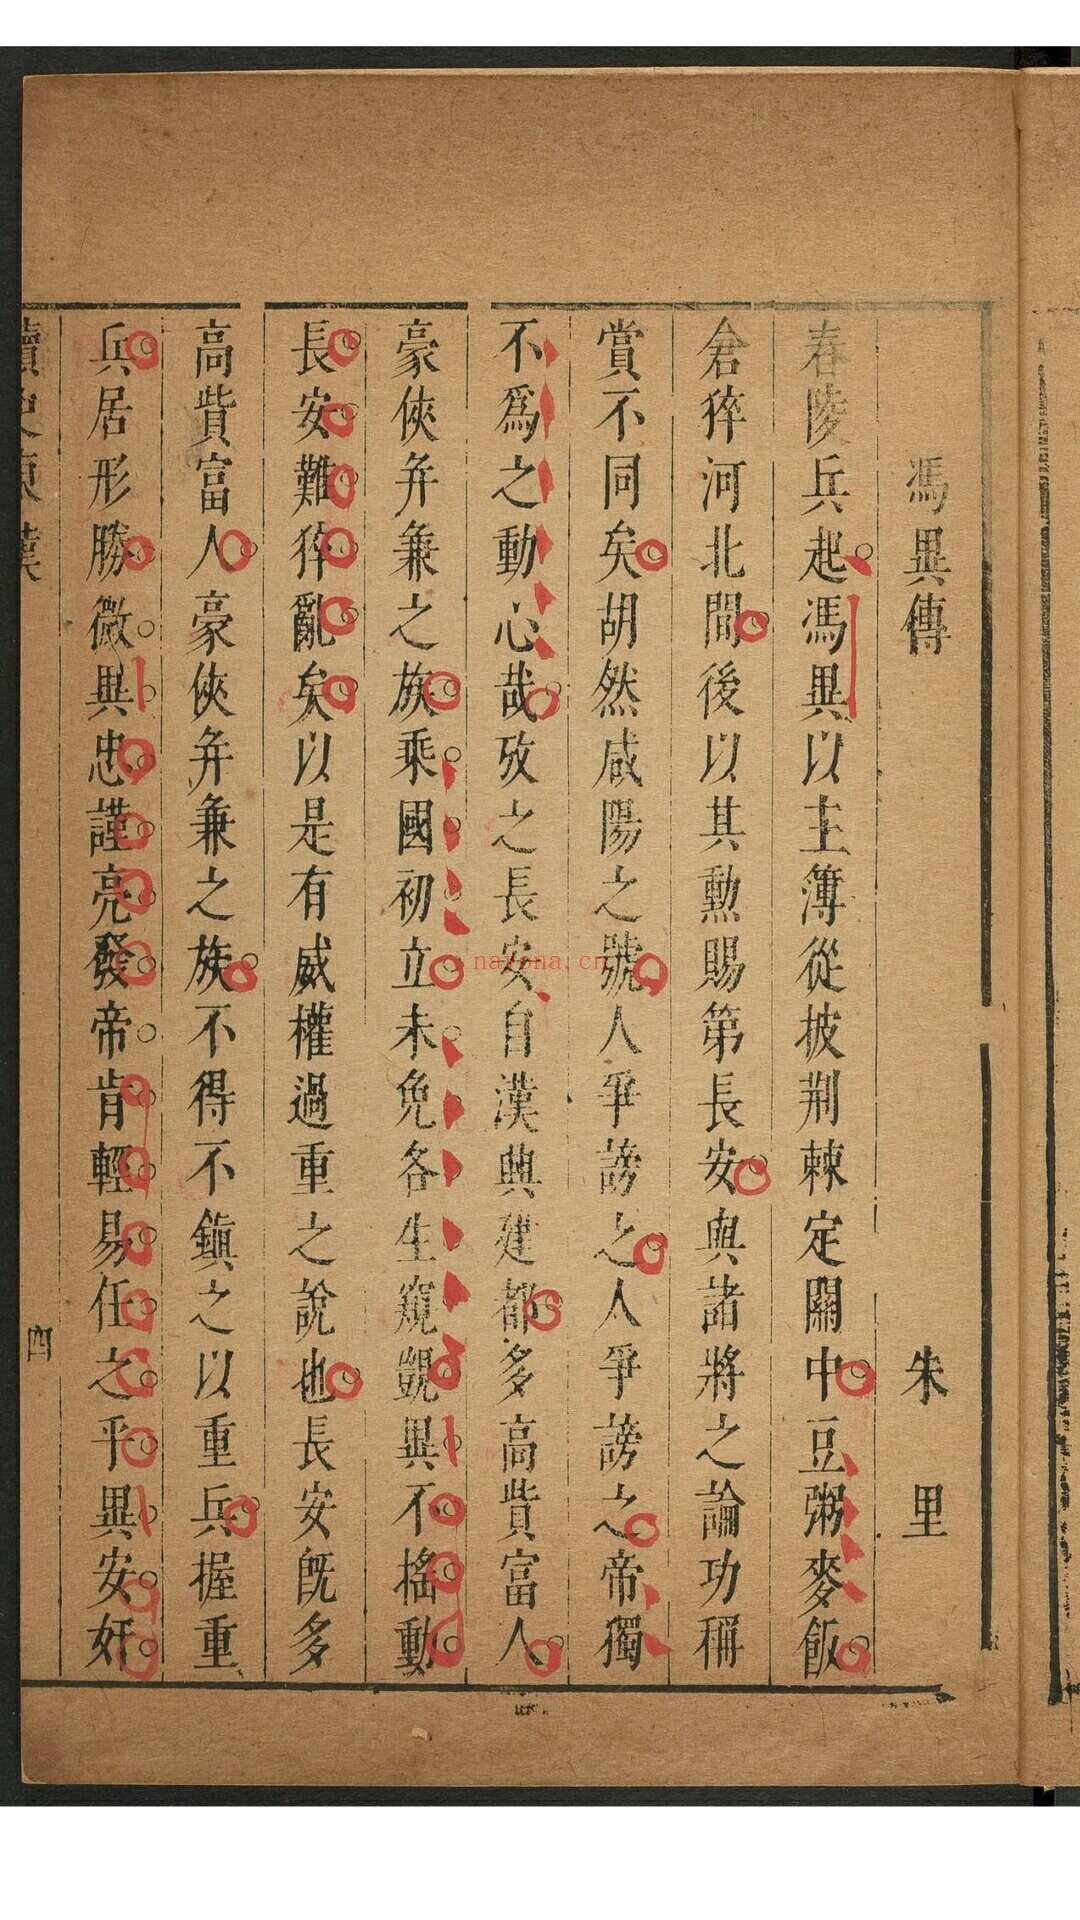 馮異傳 朱里
舂陵兵起馮異以主簿從披荆棘定關中豆粥麥飯
倉猝河北間後以其勲賜第長安與諸將之論功稱
賞不同矣胡然咸陽之號人爭謗之人爭謗之帝獨
不爲之動心哉攷之長安自漢興建都多高貲富人
豪俠并兼之族乘國初立未免各生窺覬異不搖動
長安難猝亂矣以是有威權過重之說也長安既多
高貲富人豪俠并兼之族不得不鎮之以重兵握重
兵居形勝微異忠謹亮發帝肯輕易任之乎異安奸
四
nayona.cn